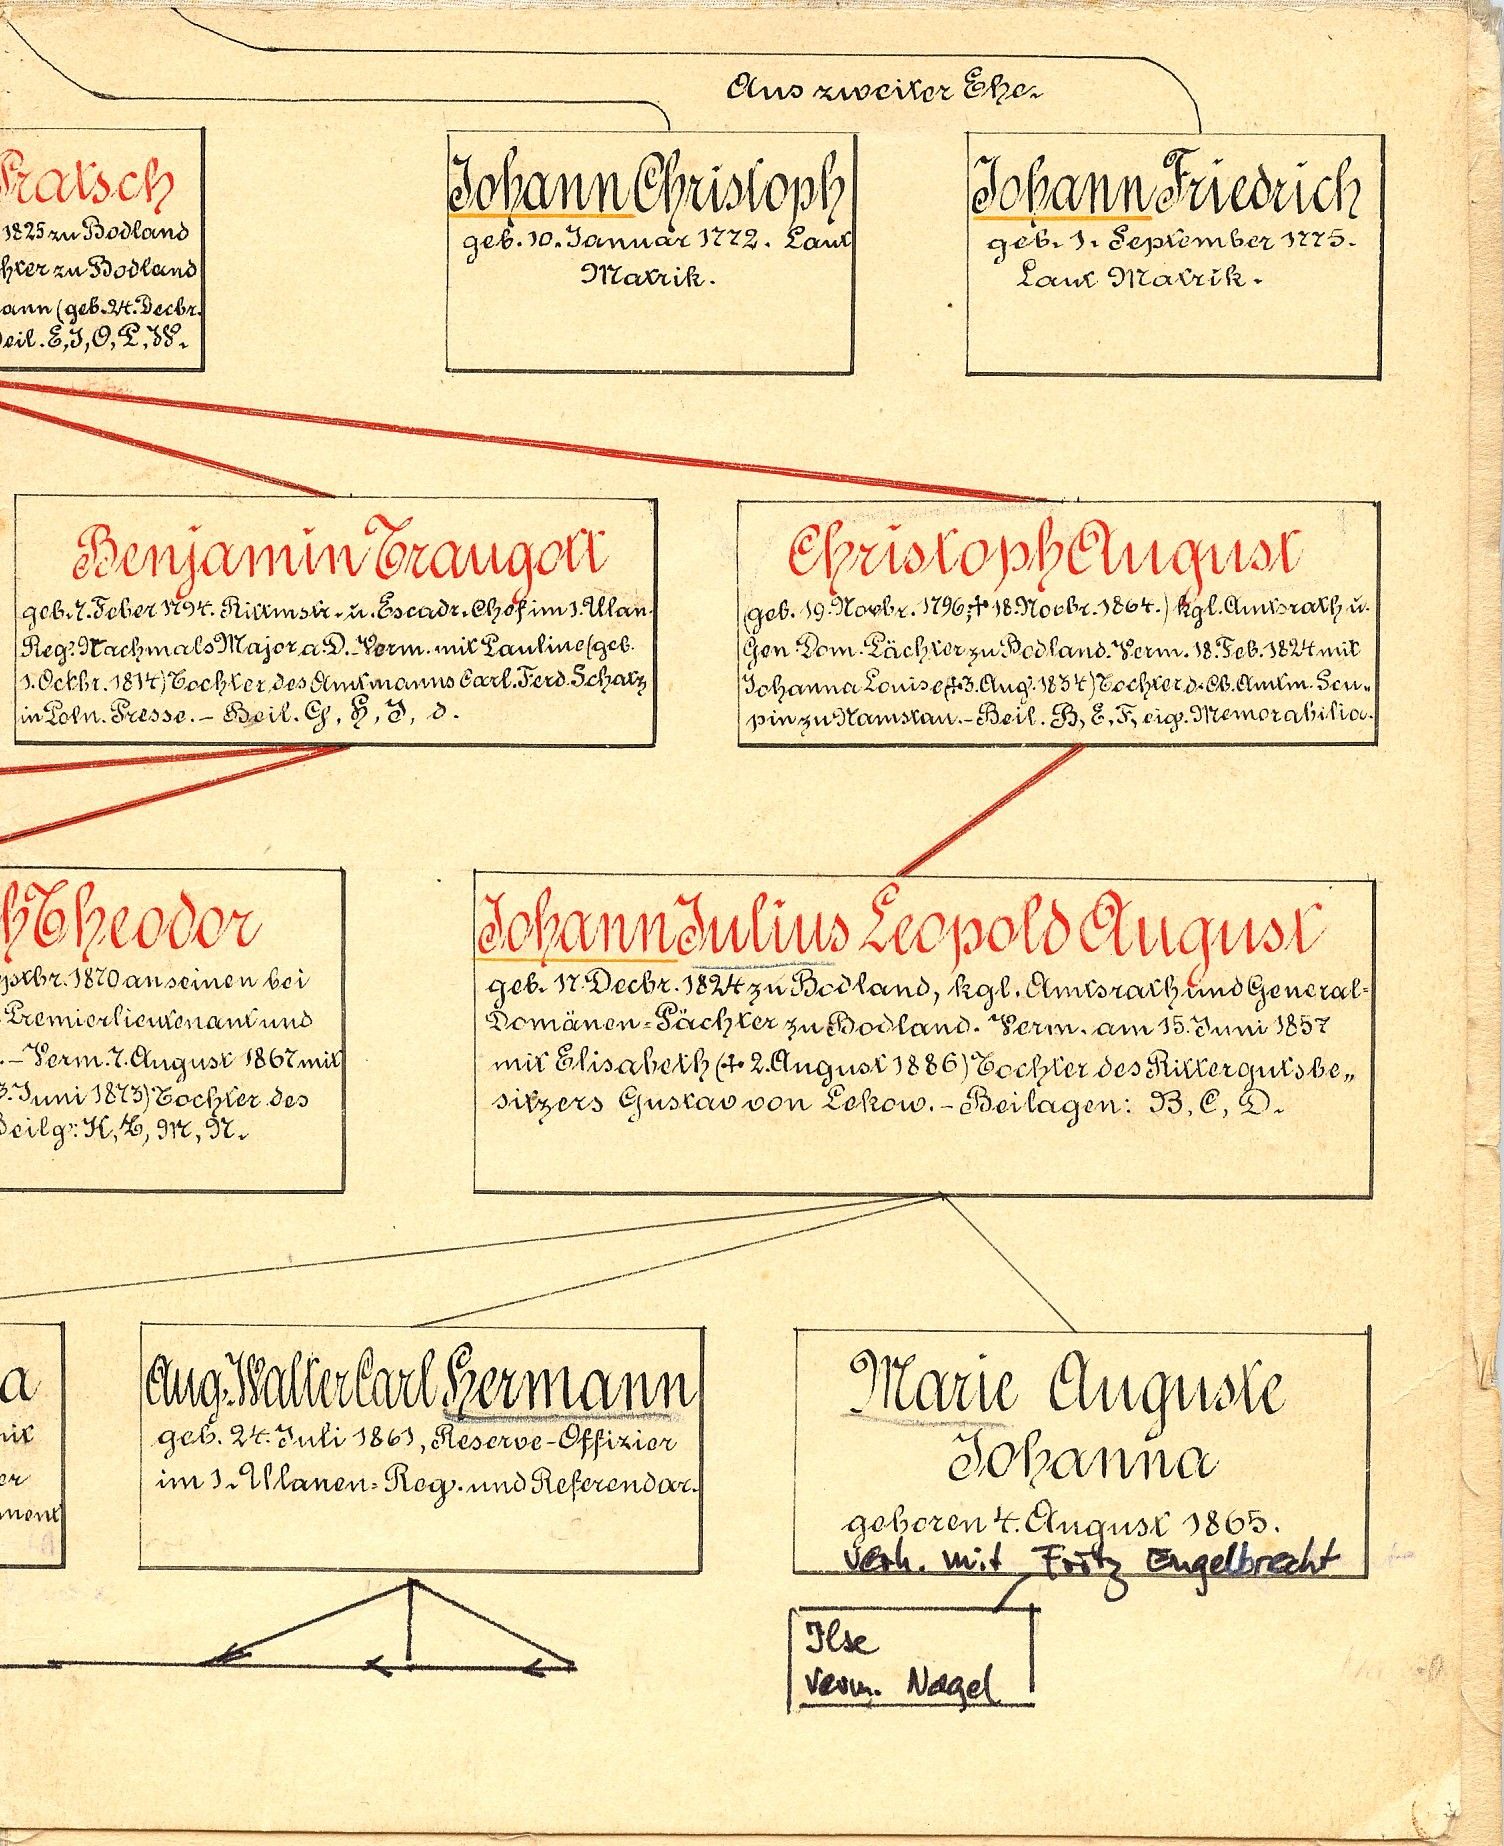 Aus zweiter Ehe.
Fratsch
1825 zu Bodland
chter zu Bodland
ann (geb. 24. Decbr.
Beil. E, J, O, P, W.
Johann Christoph
geb. 10. Januar 1772. Laut
Matrik.
Johann Friedrich
geb. 1. September 1775.
Laut Matrik.
Benjamin Traugott
geb. 7. Feber 1794. Rittmstr. u. Escadr. Chef im 1. Ulan.
Reg. Nachmals Major a. D. Verm. mit Pauline (geb.
1. Octbr. 1814) Tochter des Amtmanns Carl. Ferd. Schatz
in Poln. Presse. – Beil. G, H, J, d.
Christoph August
(geb. 19. Novbr. 1796, † 18. Novbr. 1864.) kgl. Amtsrath u.
Gen Dom. Pächter zu Bodland. Verm. 18. Feb. 1824 mit
Johanna Louise († 3. Aug. 1834) Tochter d. Ob. Amtm. Seu„
pin zu Namslau. – Beil. B, E, F, eig. Memorabilia.
h Theodor
ptbr. 1870 an seinen bei
Premierlieutenant und
. – Verm. 7. August 1867 mit
3. Juni 1873) Tochter des
Beilg: K, L, M, N.
Johann Julius Leopold August
geb. 17. Decbr. 1824 zu Bodland, kgl. Amtsrath und General=
Domänen=Pächter zu Bodland. Verm. am 15. Juni 1857
mit Elisabeth († 2. August 1886) Tochter des Rittergutsbe„
sitzers Gustav von Lekow. – Beilagen: B, C, D.
a
mit
er
ment
Aug. Walter Carl Hermann
geb. 24. Juli 1861, Reserve-Offizier
im 1. Ulanen=Reg. und Referendar.
Marie Auguste
Johanna
geboren 4. August 1865.
verh. mit Fritz Engelbrecht
Ilse
verm. Nagel